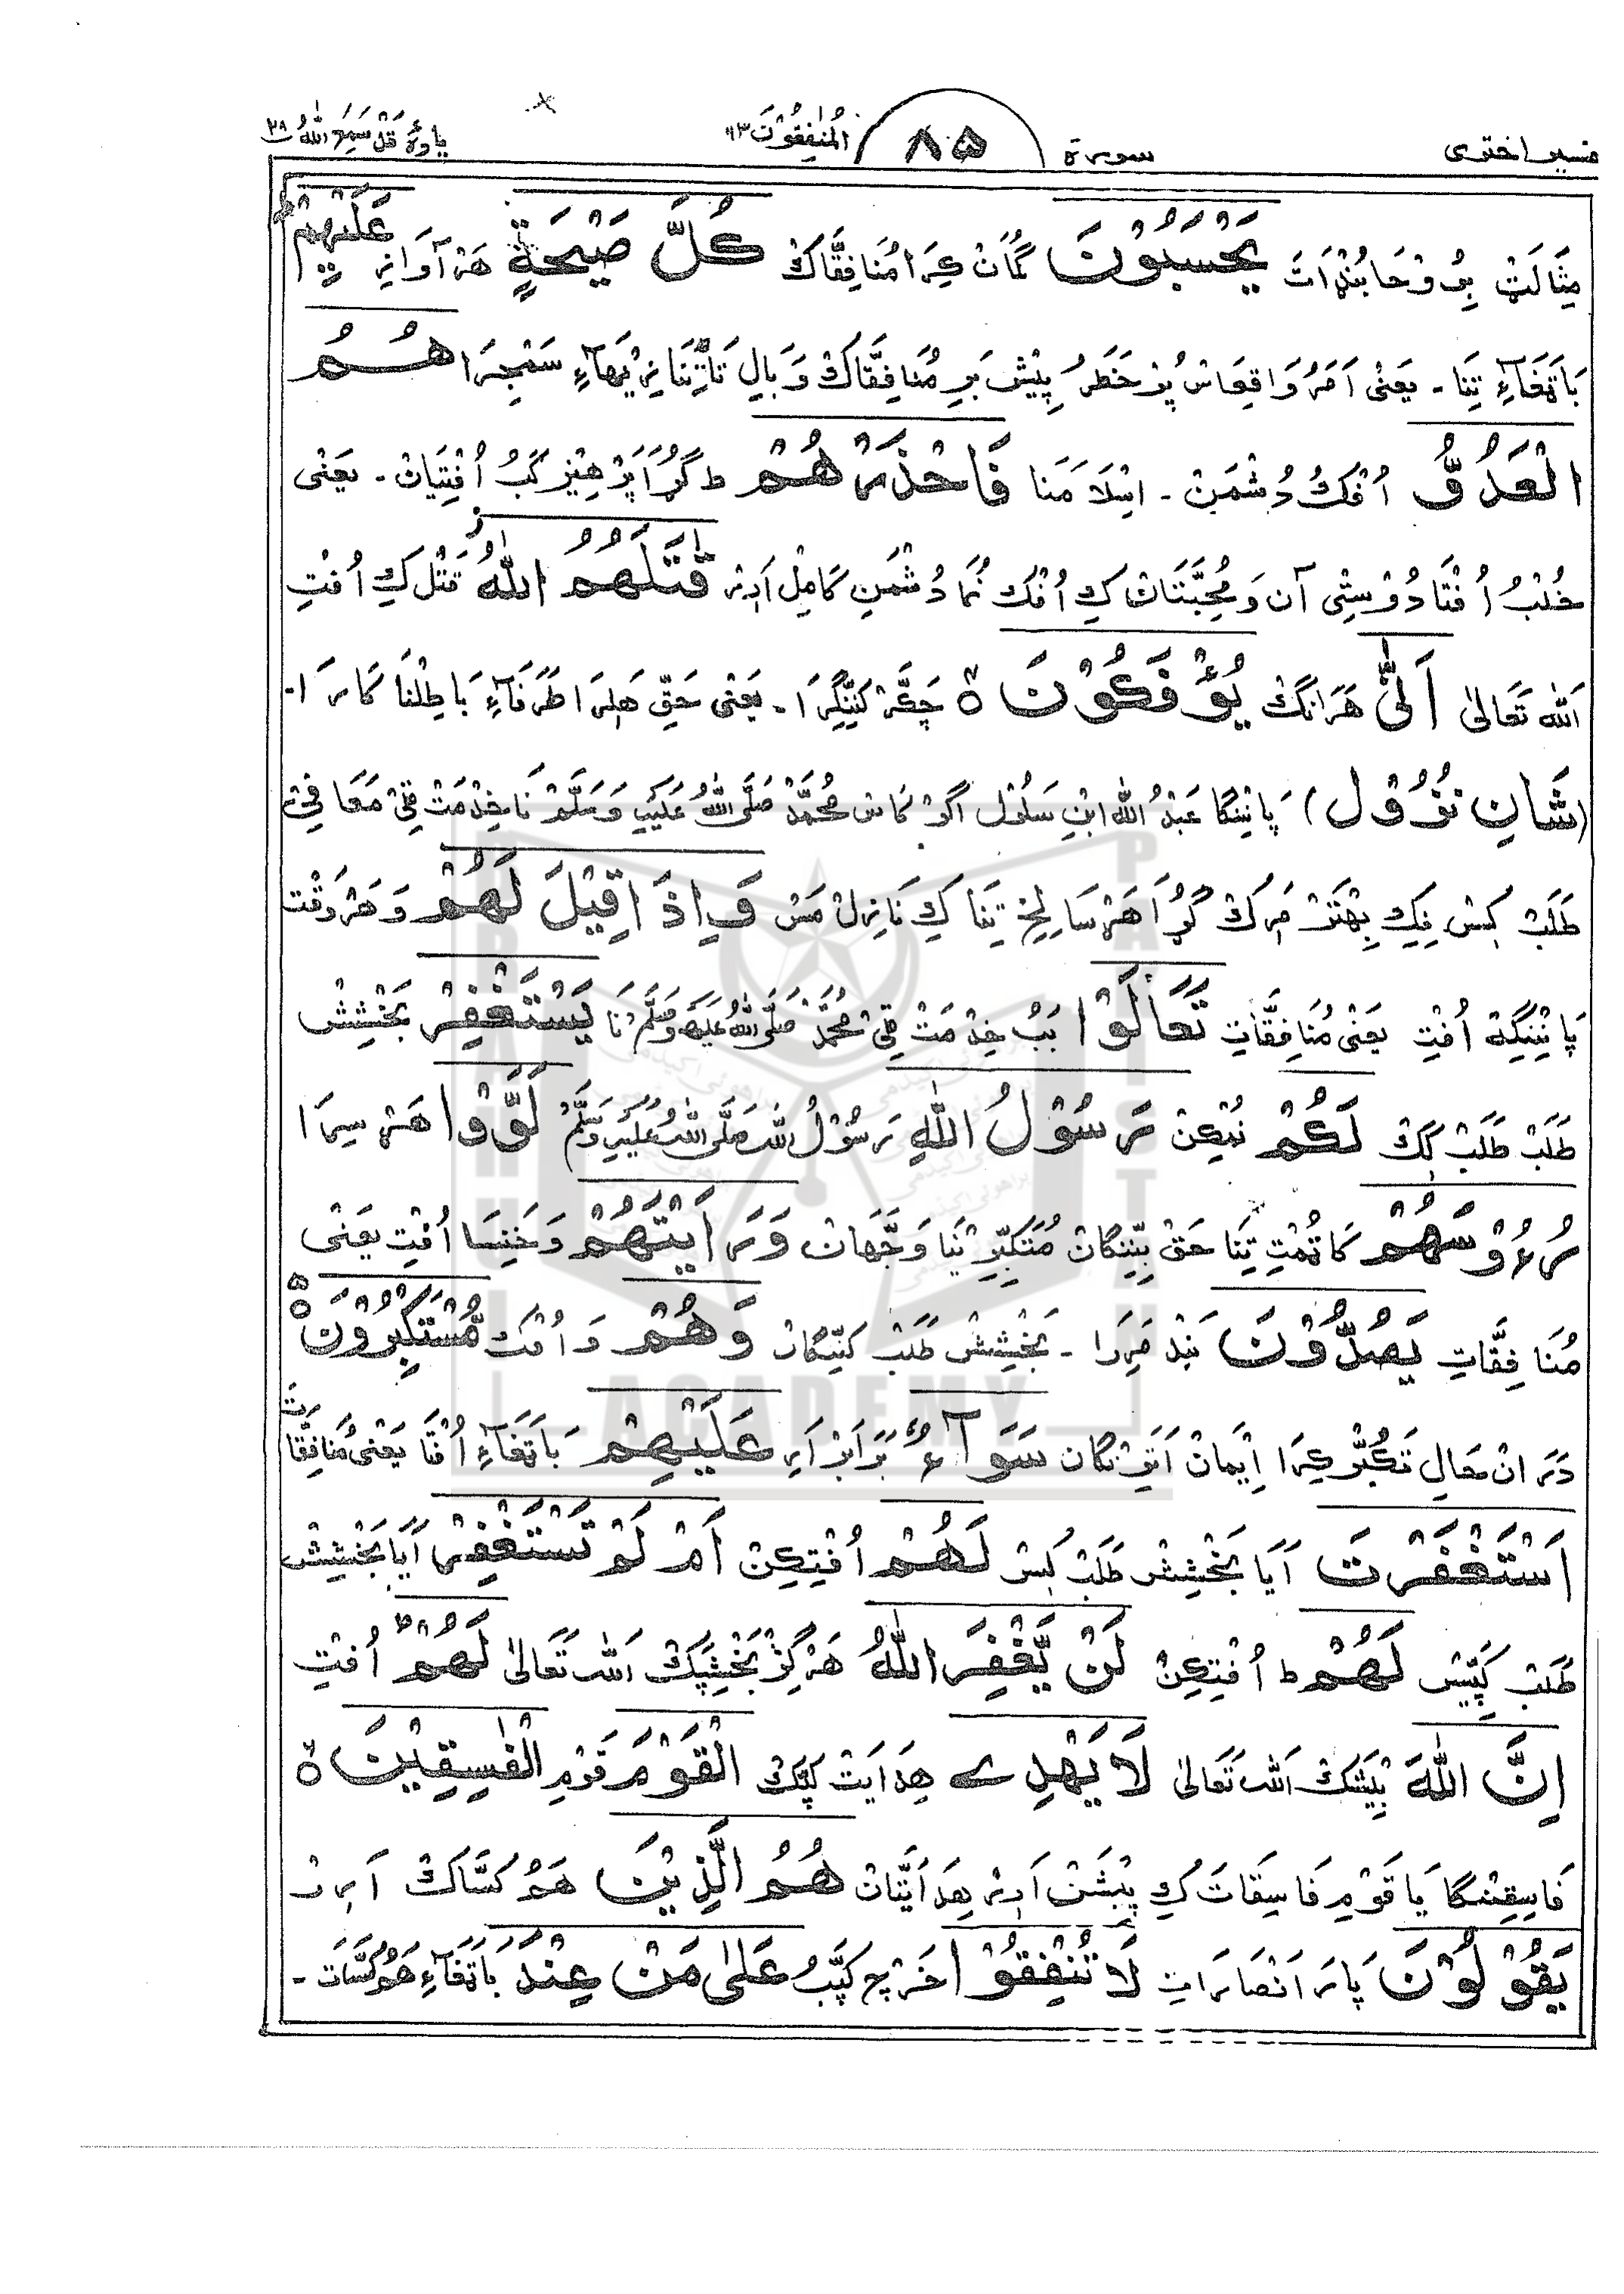 تفسیر اختری سورة ۸۵ المُنٰفِقُوْنَ ۶۳ پارهٔ قَدْ سَمِعَ اللّٰهُ ۲۸
مِثَالَتْ یُو وْ حَا بُنْڈَاتَ یَحْسَبُوْنَ گُمَانْ کِرَا مُنَافِقَّاکْ کُلَّ صَیْحَةٍ هَرْ آوَازِ عَلَیْهِمْ ط
بَاتِغَآءِ تِنَا - یَعْنِیْ اَمَرْ وَاقِعَاسْ پُرْ خَطَرْ پِیْشْ بَرِ مُنَافِقَّاکْ وَبَالِ تَا تِنَا نِیْهَآءِ سَمْجِرَا هُمُ
الْعَدُوُّ اُفْکْ دُشْمَنْ - اِسْلَامَنَا فَاحْذَرْهُمْ ط گُڑَا پَرْهِیْز کَبُ اُفْتِیَانْ - یَعْنِیْ
خُلْبُ اُفْتَا دُوْسْتِیْ آن وَ مُحَبَّتَانْ کِ اُفْکْ نُمَا دُشْمَنِ کَامِلْ اَرِیْر قٰتَلَهُمُ اللّٰهُ ز قَتْل کِ اُفْتِ
اَللّٰه تَعَالیٰ اَنّٰی هَرَانْگْ یُؤْفَکُوْنَ ۝ چَکَّرْ کَنِّنْگِرَا - یَعْنِیْ حَقِّ هَلِرَا طَرَفَآءِ بَاطِلْنَا کَارَا -
(شَانِ نُزُوْل) پَانِنْگَا عَبْدُ اللّٰه ابْنِ سَلُوْل اَگَرْ کَاسْ مُحَمَّدْ صَلَّی اللّٰهُ عَلَیْهِ وَسَلَّمْ نَا خِدْمَتْ ٹِیْ مَعَافِیْ
طَلَبْ کِسْ نِکِ بِهْتَرْ مَرِکْ گُڑَا هَرْسَا لِیْخِ تِنَا کِ نَازِلْ مَسْ وَاِذَا قِیْلَ لَهُمْ وَ هَرْوَقْت
پَانِنْگِهْ اُفْتِ یَعْنِیْ مُنَافِقَّاتِ تَعَالَوْا بَبُ خِدْمَتْ ٹِیْ مُحَمَّدْ صَلَّی اللّٰهُ عَلَیْهِ وَسَلَّمْ نَا یَسْتَغْفِرْ بَخْشِشْ
طَلَبْ طَلَبْ کِکْ لَکُمْ نُمْکِنْ رَسُوْلُ اللّٰهِ رَسُوْلُ اللّٰه صَلَّی اللّٰهُ عَلَیْهِ وَسَلَّمْ لَوَّوْا هَرْسِرَا
رُءُوْسَهُمْ کَاتُمْتِ تِنَا حَقْ بِنِّنْگَانْ مُتَکَبِّرِ تِنَا وَجَّهَانْ وَرَاَیْتَهُمْ وَ خَنِسَا اُفْتِ یَعْنِیْ
مُنَافِقَّاتِ یَصُدُّوْنَ بَنْدْ مَرِرَا - بَخْشِشْ طَلَبْ کَنِّنْگَانْ وَهُمْ وَ اُفْکْ مُّسْتَکْبِرُوْنَ ۝ ۵
دَرَ انْ حَالِ تَکَبُّرْ کِرَا اِیْمَانْ اَتِنْگَان سَوَآءٌ بَرَابَرْ اَرِ عَلَیْهِمْ بَاتِغَآءِ اُفْتَا یَعْنِیْ مُنَافِقَّاتَ
اَسْتَغْفَرْتَ آیَا بَخْشِشْ طَلَبْ کِسْ لَهُمْ اُفْتِکِنْ اَمْ لَمْ تَسْتَغْفِرْ آیَا بَخْشِشْ
طَلَبْ کَپِّیْس لَهُمْ ط اُفْتِکِنْ لَنْ یَّغْفِرَ اللّٰهُ هَرْگِزْ بَخْشِپَّکْ اَللّٰه تَعَالیٰ لَهُمْ ط اُفْتِ
اِنَّ اللّٰهَ بِیْشَکْ اَللّٰه تَعَالیٰ لَا یَهْدِے هِدَایَتْ کَپَّکْ الْقَوْمَ قَوْمِ الْفٰسِقِیْنَ ۝
فَاسِقِنْگَا یَا قَوْمِ فَاسِقَاتَ کِ پِیْشَنْ اَرِیْر هِدَایَتَّانْ هُمُ الَّذِیْنَ هَمُو کَسَّاکْ اَرِیْر
یَقُوْلُوْنَ پَارَ اَنْصَارَاتِ لَا تُنْفِقُوْا خَرْچ کَپَّبُ عَلٰی مَنْ عِنْدَ بَاتِغَآءِ هَمُوکَسَّاتَ -
BRAHUI ACADEMY PAKISTAN